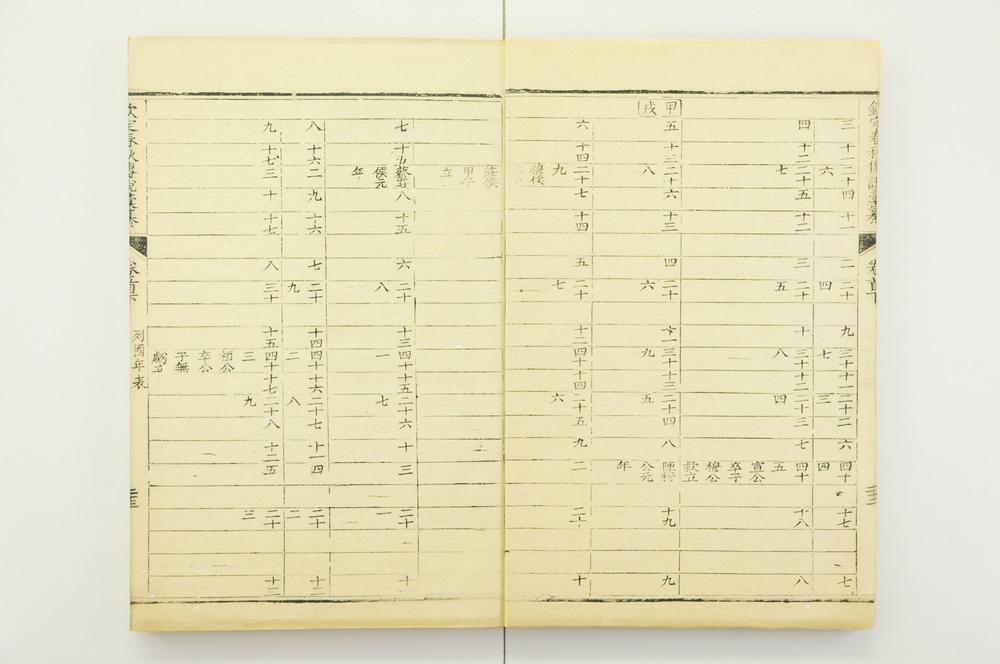 欽定春秋傳說彙纂 卷首下
三 十一 二十四 十一 二 二十 九 三十 十一 二十二 六 四十 十七 七
六 四 七 三 四
四 十二 二十五 十二 三 二十 十 三十 十二 二十三 七 四十 十八 八
七 五 八 四 五
宣公
卒子
穆公
款立
甲戌
五 十三 二十六 十三 四 二十 十一 三十 十三 二十四 八 陳穆公元 十九 九
八 六 九 五 年
六 十四 二十七 十四 五 二十 十二 四十 十四 二十五 九 二 二十 十
九 七 六
穆侯
莊侯
甲午
立
七 十五 蔡莊侯元 八 十五 六 二十 十三 四十 十五 二十六 十 三 二十 十
年 八 一 七 一
八 十六 二 九 十六 七 二十 十四 四十 十六 二十七 十一 四 二十 十一
九 二 八 二
九 十七 三 十 十七 八 三十 十五 四十 十七 二十八 十二 五 二十 十二
三 九 三
桓公
卒公
子無
虧立
欽定春秋傳說彙纂 卷首下 列國年表